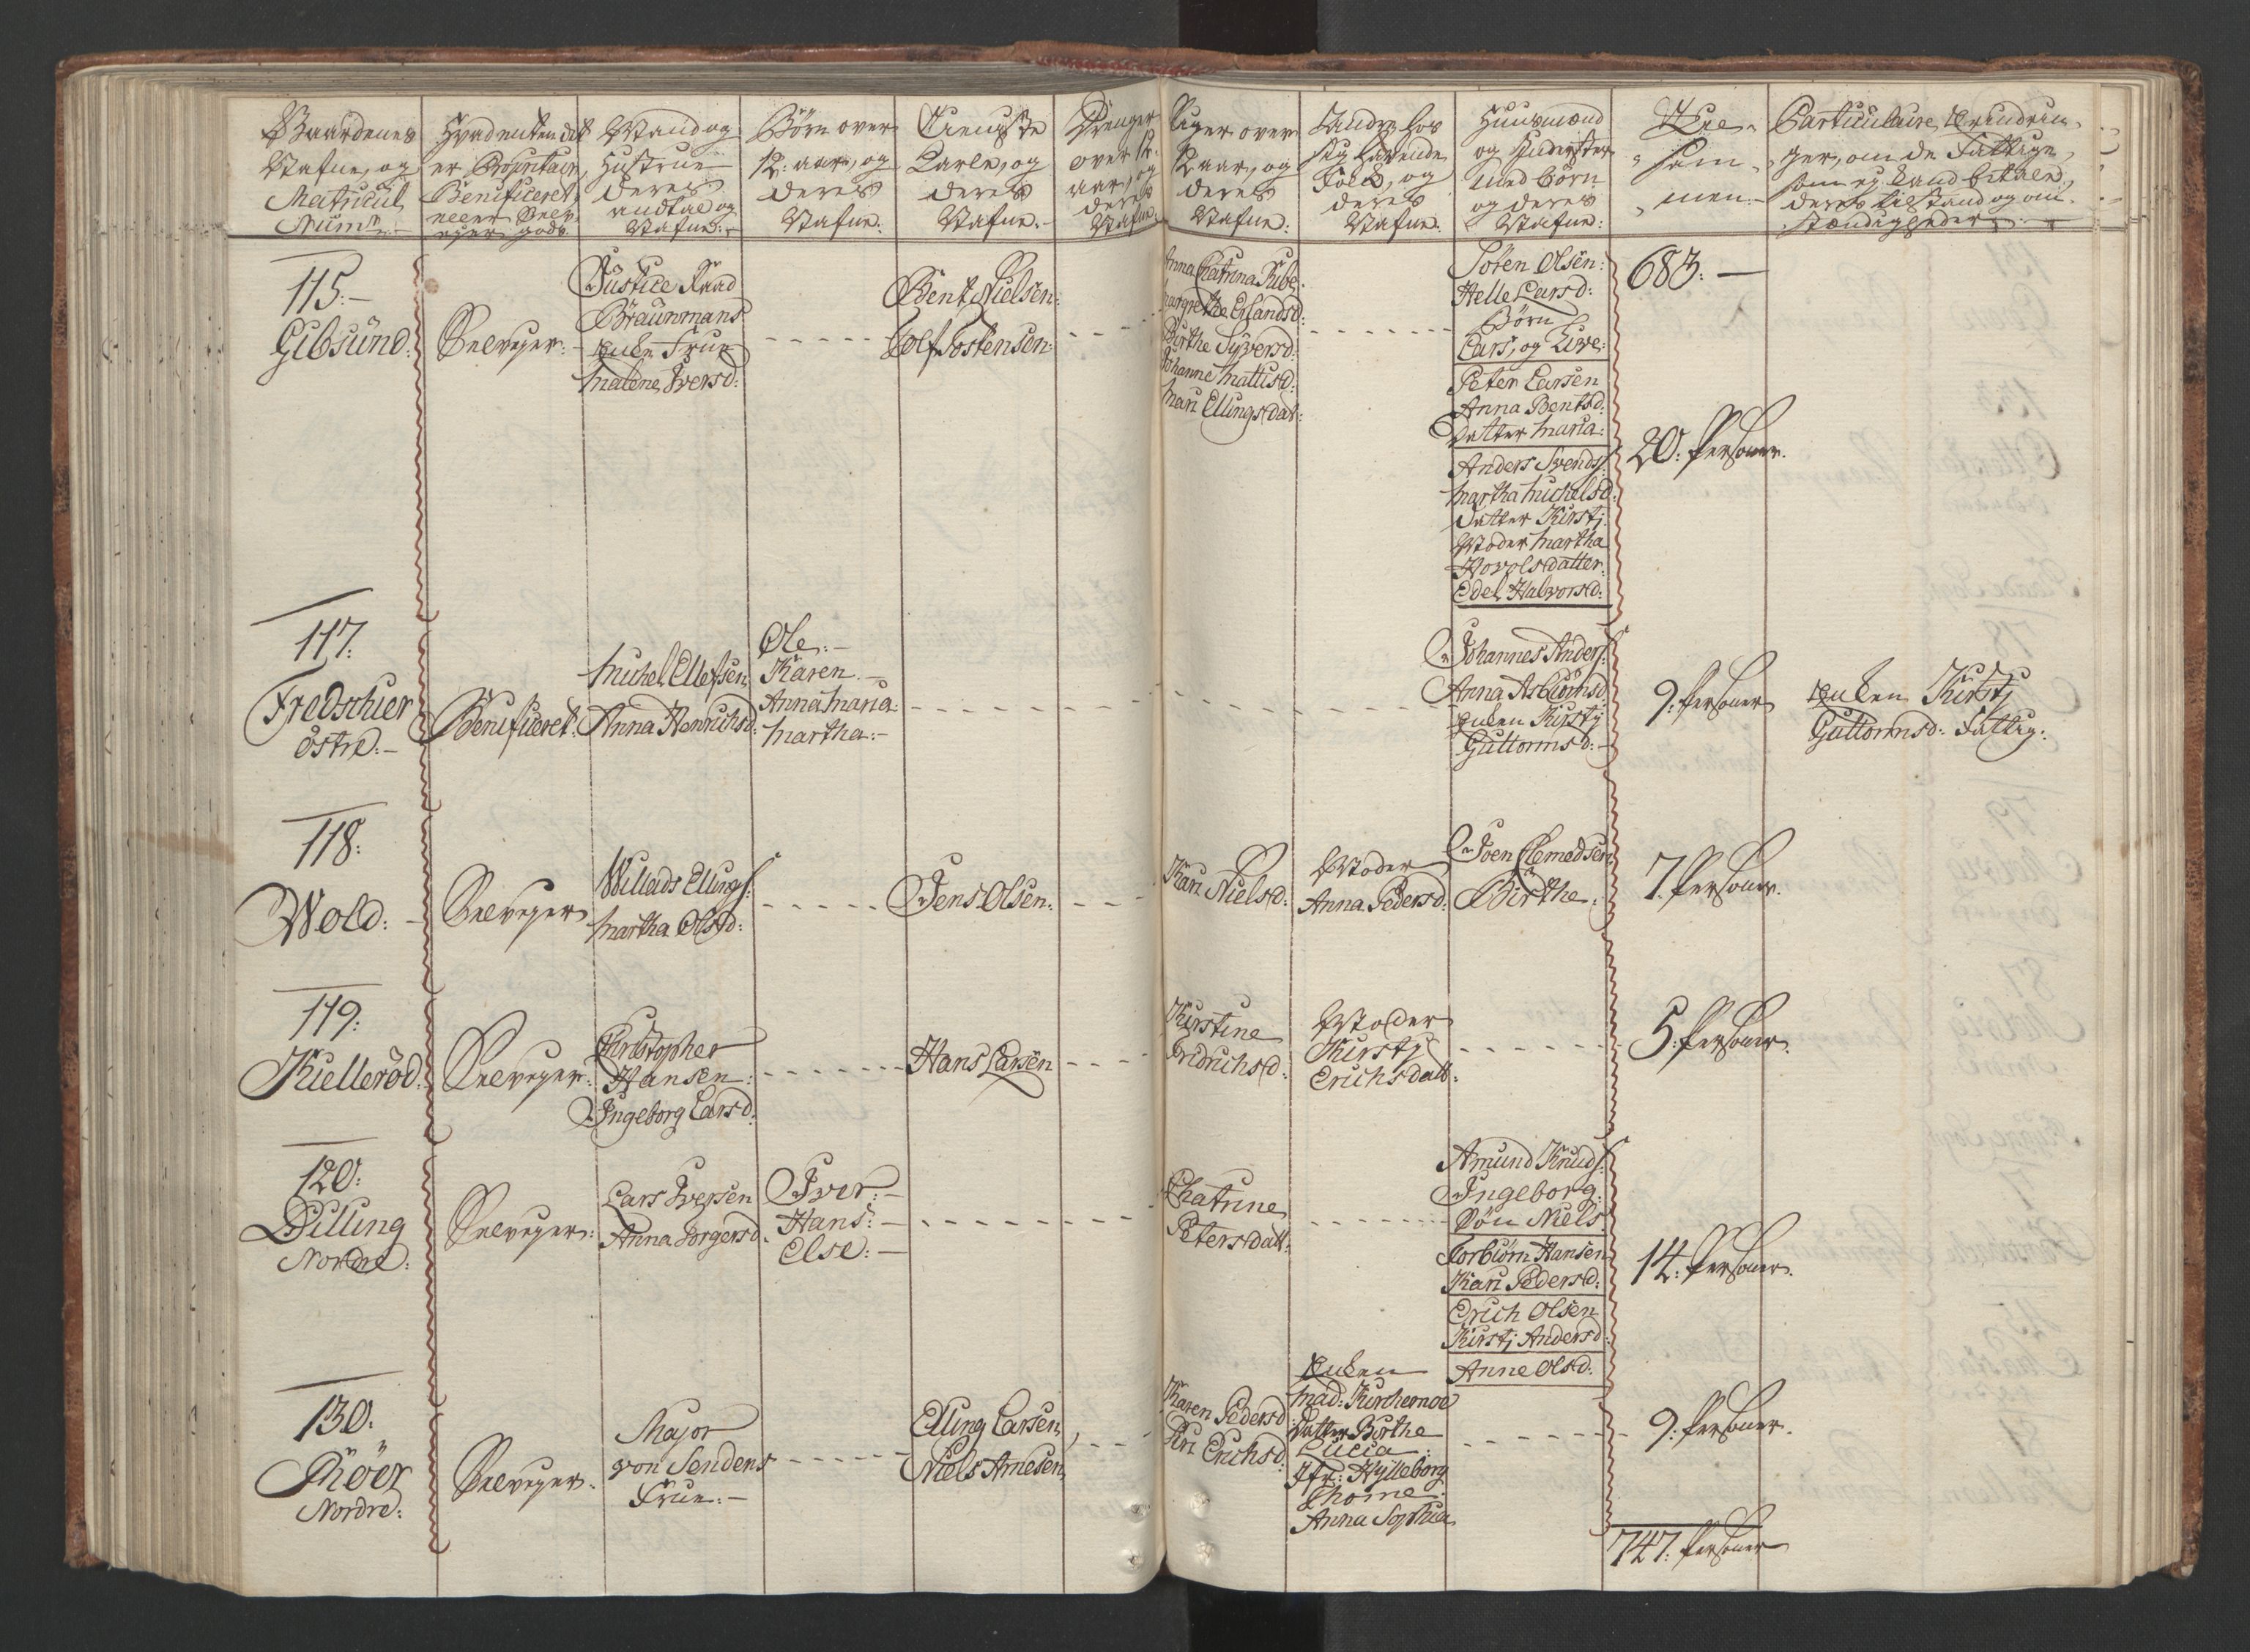 Gaardenes
Nafne, og
Matricul
Num:
Hvad enten det
er Proprietair,
Beneficeret,
eller Selv-
eyer gods
Mand og
Hustrue
deres
andtal og
Nafne:
Børn over
12: aar, og
deres
Nafne:
Tieneste
Karle, og
deres
Nafne:
Drenger
over 12
aar, og
deres
Nafne
Piger over
12 aar, og
deres
Nafne:
Andre hos
sig havende
Folk, og
deres
Nafne:
Huusmænd
og Inderster
med Børn
og deres
Nafne:
Til-
sam-
men:
Particulaire Erindrin-
ger, om de Fattige,
som ej kand betale,
deres tilstand og om-
stændigheder
115:
Gibsund:
Selveyer:
Justice Raad
Braunmans
enke Frue
Malene Iversd:
Bent Nielsen:
Tolf Tostensen:
Anna Catrina Jube.
Margrethe Erlandsd:
Birthe Syversd:
Johanne Mattisd:
Mari Ellingsdat:
Søren Olsen:
Helle Larsd:
Børn
Lars, og Live:
Peter Larsen
Anna Bentsd:
Datter Maria:
Anders Svends:
Martha Michelsd:
Datter Kirstj
Moder Martha
Hovolsdatter:
Edel Halvorsd:
683:
20: Personer.
117:
Fredschier
Østre:
Beneficeret:
Michel Ellefsen
Anna Henrichsd:
Ole:
Karen
Anna Maria:
Martha:
Johannes Anders:
Anna Asbiørnsd:
Enken Kirstj
Guttormsd:
9: Personer
Enken Kirstj
Guttormsd: Fattig:
118:
Wold:
Selveyer
Willads Ellings:
Martha Olsd:
Jens Olsen:
Kari Nielsd:
Moder
Anna Pedersd:
Joen Clemedsen
Birthe:
7. Personer.
119:
Kiellerød:
Selveyer:
Christopher
Hansen:
Ingeborg Larsd:
Hans Larsen
Kirstine
Fridrichsd:
Moder
Kirstj
Erichsdatt:
5: Personer.
120:
Dilling
Nordre:
Selveyer:
Lars Iversen
Anna Torgersd.
Iver:
Hans:
Else:
Chatrine
Petersdatt:
Amund Knuds:
Ingeborg:
Søn Niels
Torbiørn Hansen
Kari Pedersd:
Erich Olsen
Kirstj Andersd:
Anne Olsd:
14: Personer.
130:
Røer
Nordre:
Selveyer.
Major
von Sendens
Frue:
Elling Larsen,
Niels Arnesen,
Karen Pedersd:
Siri Erichsd:
Enken
Mad: Kirchemoe
Datter Birthe
Lucia:
Jfr: Hylleborg
Thorne:
Anna Sophia
9: Personer.
747: Personer